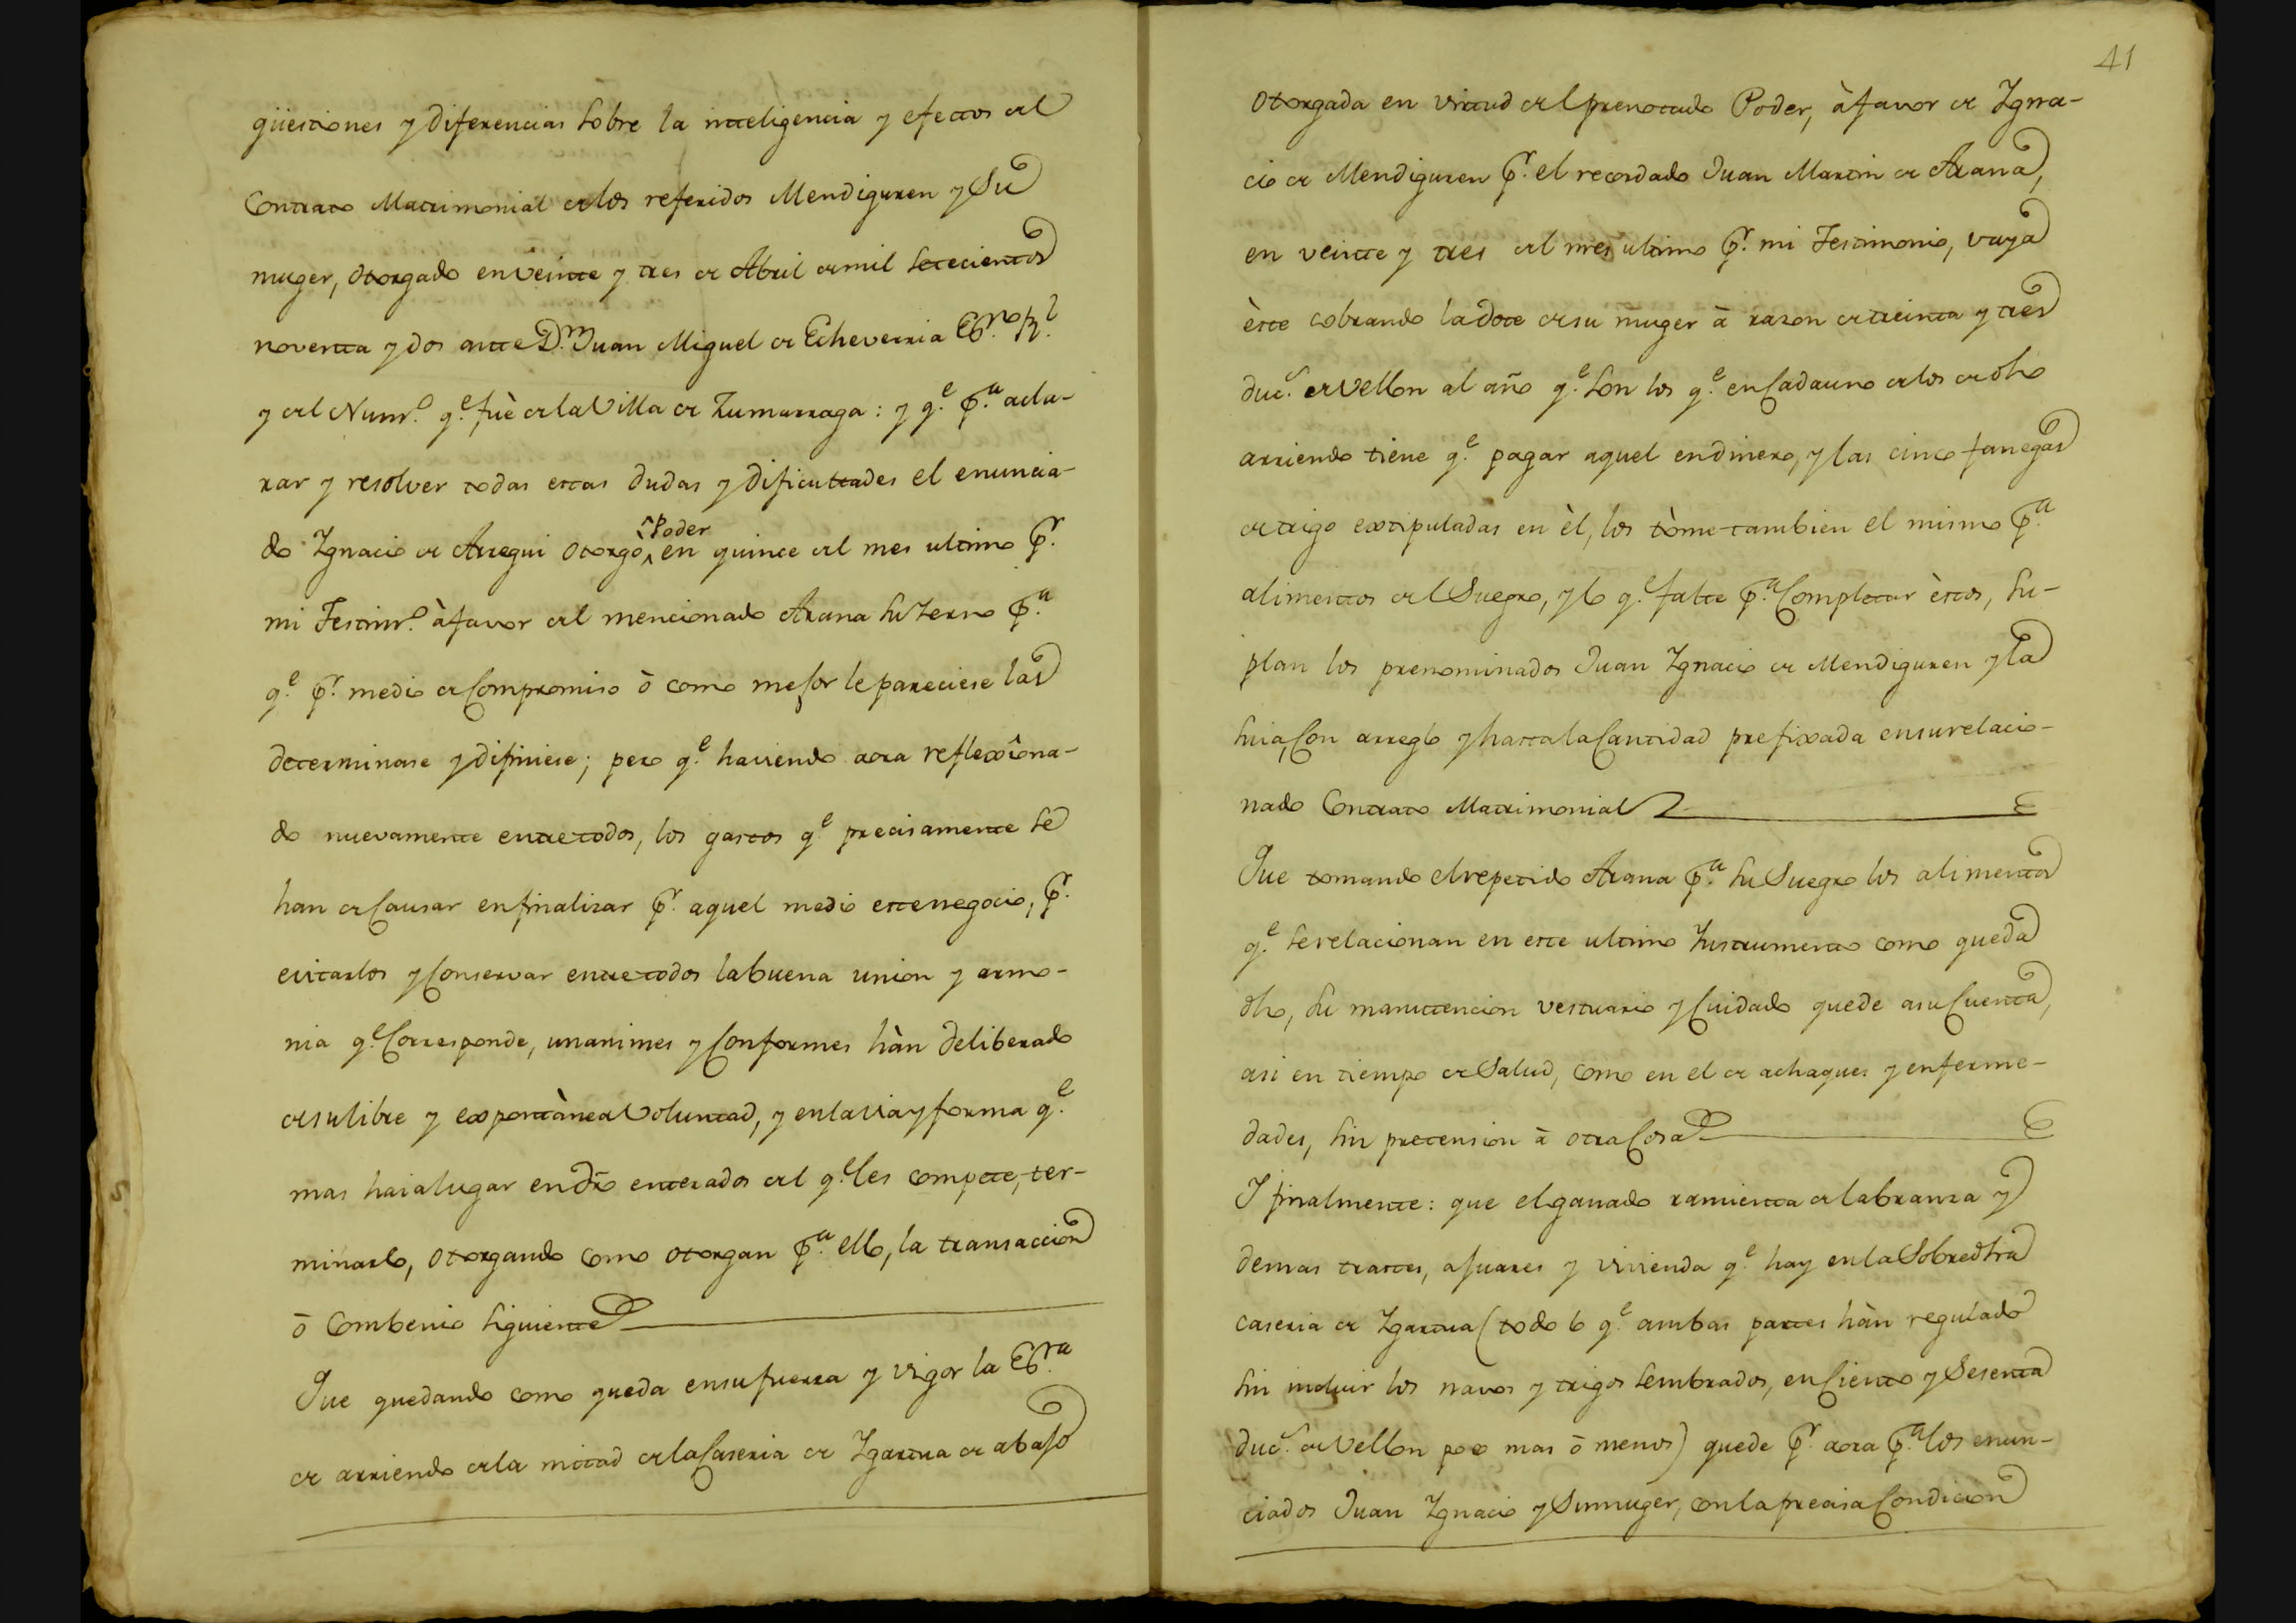 qüestiones y diferencias sobre la inteligencia y efectos del
Contrato Matrimonial de los referidos Mendiguren y Su
muger, otorgado en veinte y tres de Abril de mil setecientos
noventa y dos ante D.n Juan Miguel de Echeverria Es.no R.l
y del Num.o q.e fuè de la Villa de Zumarraga: y q.e p.a acla-
rar y resolver todas estas dudas y dificultades el enuncia-
do Ygnacio de Arregui otorgò Poder en quince del mes ultimo p.r
mi Testim.o à favor del mencionado Arana su Yerno p.a
q.e p.r medio de Compromiso ò como mejor le pareciese las
determinase y difiniese; pero q.e haviendo aora reflexîona-
do nuevamente entre todos, los gastos q.e precisamente se
han de Causar en finalizar p.r aquel medio este negocio, p.r
evitarlos y Conservar entre todos la buena union y armo-
nia q.e Corresponde, unanimes y Conformes hàn deliberado
de su libre y expontànea Voluntad, y en la via y forma q.e
mas haia lugar en dro enterados del q.e les compete, ter-
minarlo, otorgando como otorgan p.a ello, la transaccion
ō Combenio siguiente
Que quedando como queda en su fuerza y vigor la Es.ra
de arriendo de la mitad de la Caseria de Ygartua de abajo
41
otorgada en virtud del prenotado Poder, à favor de Ygna-
cio de Mendiguren p.r el recordado Juan Martin de Arana,
en veinte y tres del mes ultimo p.r mi Testimonio, vaya
èste cobrando la dote de su muger à razon de treinta y tres
duc.s de Vellon al año q.e son los q.e en Cada uno de los de dho
arriendo tiene q.e pagar aquel en dinero, y las cinco fanegas
de trigo extipuladas en èl, los tòme tambien el mismo p.a
alimentos del Suegro, y lo q.e falte p.a Completar èstos, su-
plan los prenominados Juan Ygnacio de Mendiguren y la
suia, Con arreglo y hasta la Cantidad prefixada en su relacio-
nado Contrato Matrimonial
Que tomando el repetido Arana p.a su Suegro los alimentos
q.e se relacionan en este ultimo Instrumento como queda
dho, su manutencion vestuario y Cuidado quede a su Cuenta,
asi en tiempo de Salud, como en el de achaques y enferme-
dades, sin pretension à otra Cosa
Y finalmente: que el ganado ramienta de labranza y
demas trastes, ajuares y vivienda q.e hay en la Sobredha
caseria de Ygartua (todo lo q.e ambas partes hàn regulado
sin incluir los navos y trigos sembrados, en Ciento y Sesenta
duc.s de Vellon poco mas ō menos) quede p.r aora p.a los enun-
ciados Juan Ygnacio y Su muger, con la precisa Condicion